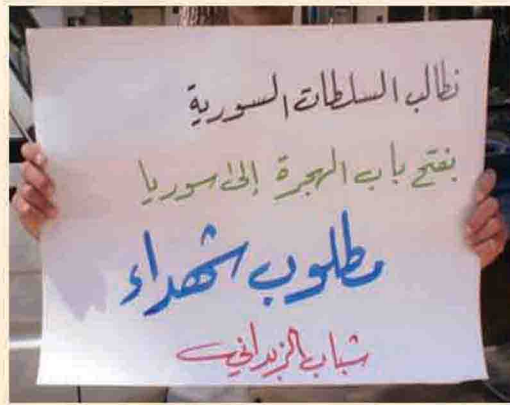 نطالب السلطات السورية
بفتح باب الهجرة إلى سوريا
مطلوب شهداء
شباب الزبداني